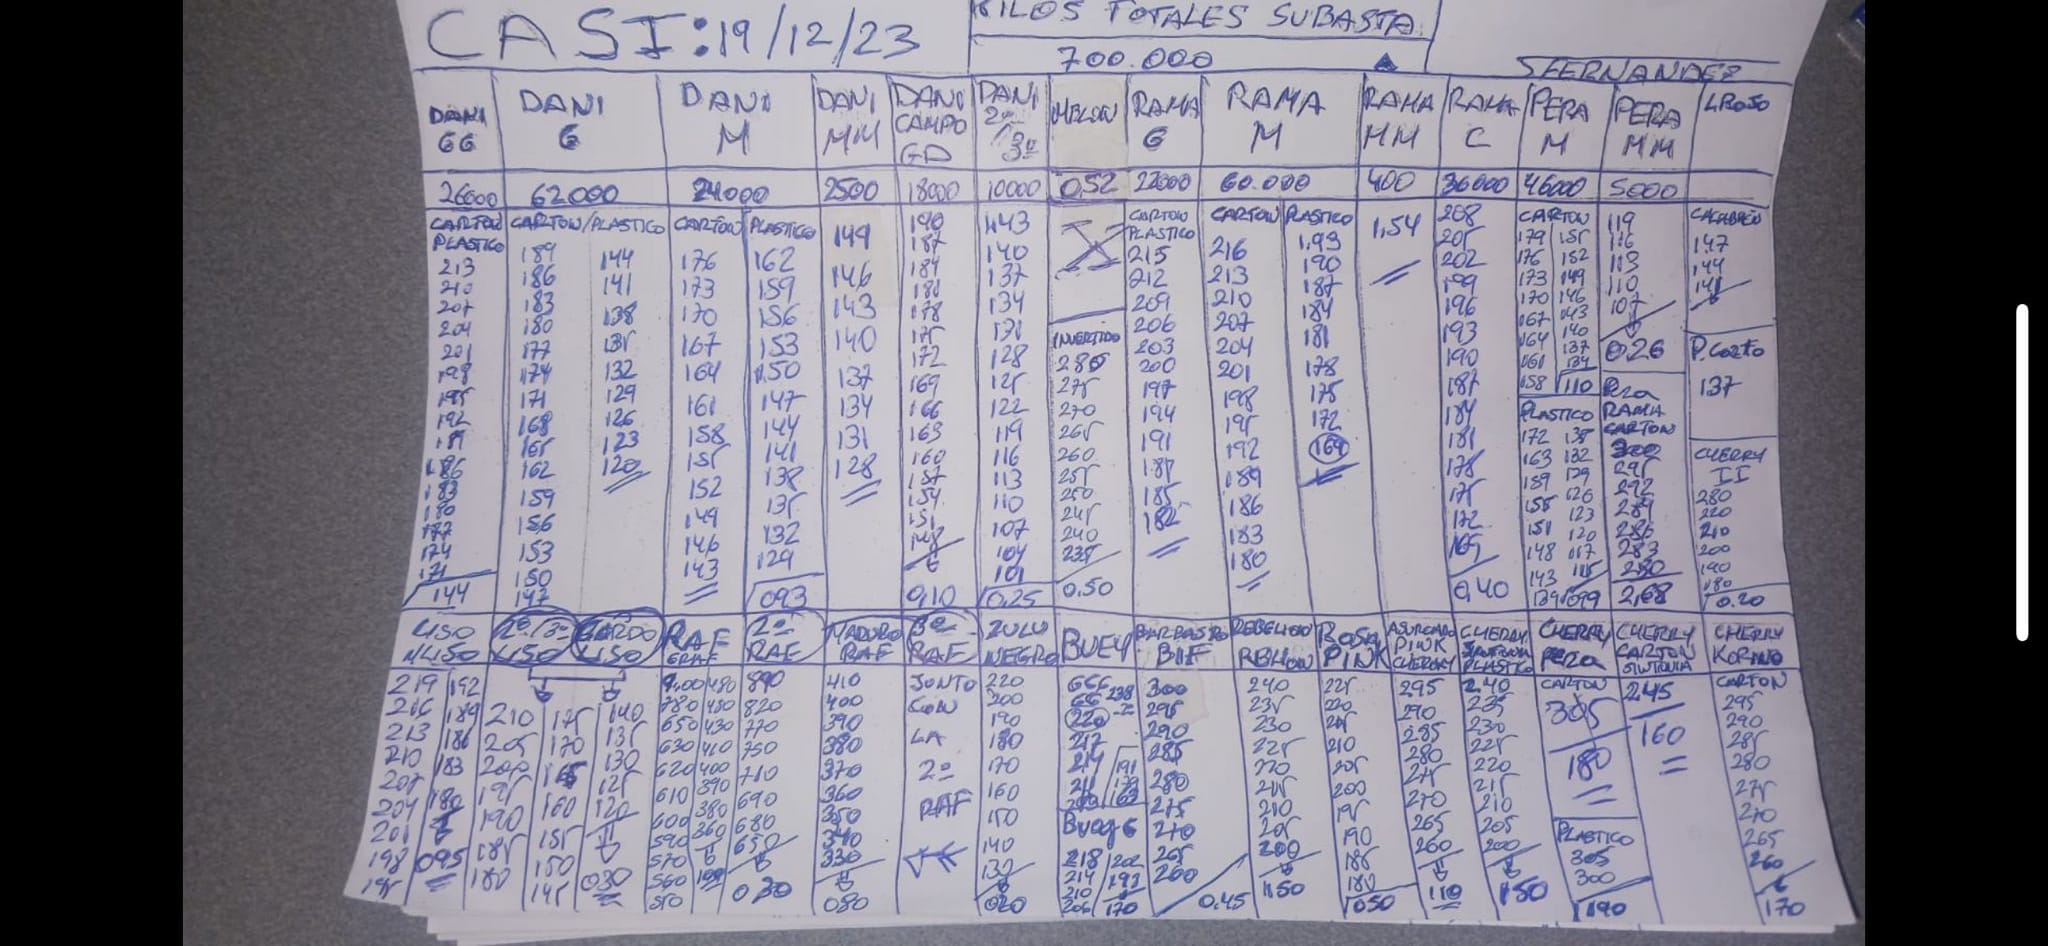 CASI: 19/12/23
KILOS TOTALES SUBASTA
700.000
SFERNANDEZ
DANI GG
DANI G
DANI M
DANI MM
DANI CAMPO GD
DANI 2ª/3ª
MELON
RAMA G
RAMA M
RAMA MM
RAMA C
PERA M
PERA MM
L ROJO
26000
62000
24000
2500
18000
10000
0,52
22000
60.000
400
36000
46000
5000
CARTON PLASTICO
213
210
207
204
201
198
195
192
189
186
183
180
177
174
171
144
CARTON/PLASTICO
189 144
186 141
183 138
180 135
177 132
174 129
171 126
168 123
165 120
162
159
156
153
150
147
CARTON PLASTICO
176 162
173 159
170 156
167 153
164 150
161 147
158 144
155 141
152 138
149 135
146 132
143 129
093
149
146
143
140
137
134
131
128
190
187
184
181
178
175
172
169
166
163
160
157
154
151
148
0,10
143
140
137
134
131
128
125
122
119
116
113
110
107
104
101
0.25
INVERTIDO
280
275
270
265
260
255
250
245
240
235
0.50
CARTON PLASTICO
215
212
209
206
203
200
197
194
191
187
185
182
CARTON PLASTICO
216 1.93
213 190
210 187
207 184
204 181
201 178
198 175
195 172
192 169
189
186
183
180
1,54
208
205
202
199
196
193
190
187
184
181
178
175
172
169
0,40
CARTON
179 155
176 152
173 149
170 146
167 143
164 140
161 137
158 134
110
PLASTICO
172 135
163 132
159 129
155 126
151 123
148 120
143 117
139 115
099
119
116
113
110
107
0.26
RAMA
CARTON
300
295
292
289
286
283
280
2,68
147
144
141
P. CORTO
137
CHERRY II
280
220
210
200
190
180
0.20
LISO
2ª/3ª LISO
GORDO LISO
RAF
2ª RAF
MADURO RAF
3ª RAF
ZULU NEGRO
BUEY
REBELION
ROSA PINK
ASURCADO PINK CHERRY
CHERRY PLASTICO
CHERRY PERA
CHERRY CARTON
CHERRY KORINO
219 192
216 189
213 186
210 183
207 180
204
201
198 095
195
210 175 140
205 170 135
200 165 130
195 160 125
190 155 120
185 150
180 145 030
780 450 820
650 430 770
630 410 750
620 400 710
610 390 690
600 380 680
590 360 650
570
560
550
030
410
400
390
380
370
360
350
340
330
080
JUNTO
CON
LA
2ª
RAF
220
200
190
180
170
160
150
140
130
020
220
217
214 191
211 179
BUEY G
218 202
214 193
210
206 170
300
295
290
285
280
275
270
265
260
0.45
240
235
230
225
220
215
210
205
200
150
225
220
215
210
205
200
195
190
185
180
050
295
290
285
280
275
270
265
260
110
2.40
235
230
225
220
215
210
205
200
150
CARTON
305
180
PLASTICO
305
300
190
245
160
CARTON
295
290
285
280
275
270
265
260
170